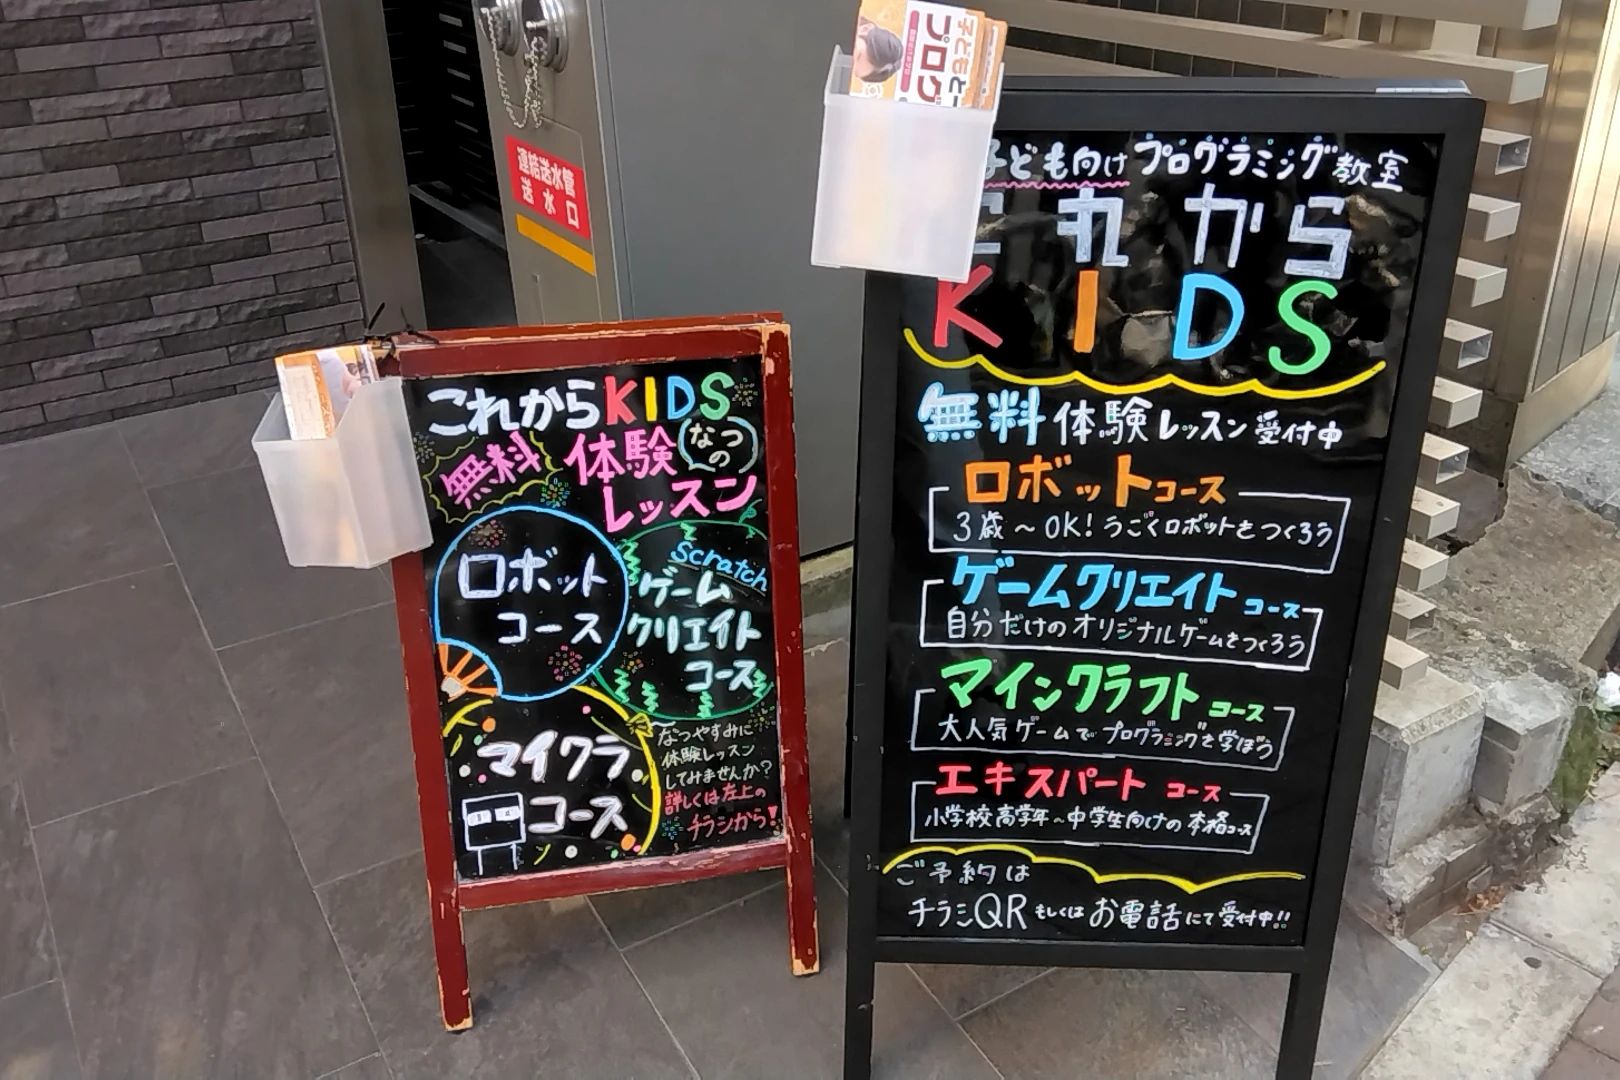 連結送水管
送水口
子どもと
プログ
これからKIDS
無料
体験
なつの
レッスン
ロボット
コース
Scratch
ゲーム
クリエイト
コース
マイクラ
コース
なつやすみに
体験レッスン
してみませんか?
詳しくは左上の
チラシから!
子ども向けプログラミング教室
これから
KIDS
無料体験レッスン受付中
ロボットコース
3歳〜OK!うごくロボットをつくろう
ゲームクリエイトコース
自分だけのオリジナルゲームをつくろう
マインクラフトコース
大人気ゲームでプログラミングを学ぼう
エキスパートコース
小学校高学年〜中学生向けの本格コース
ご予約は
チラシQRもしくはお電話にて受付中!!